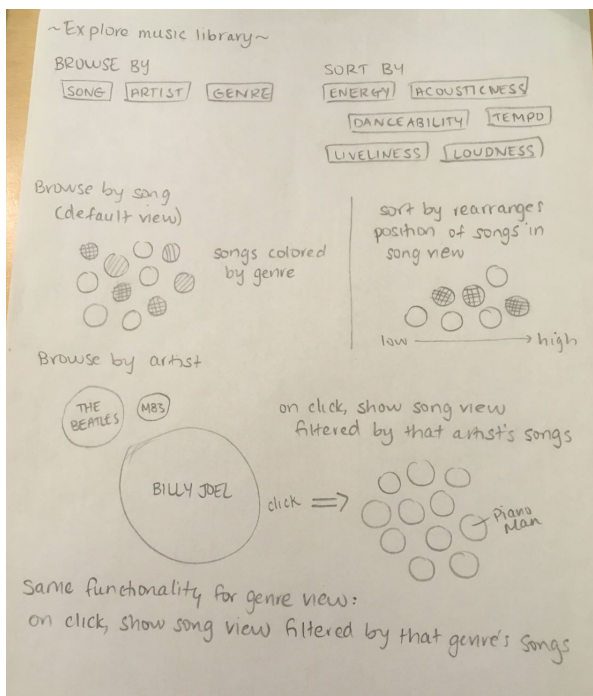 ~Explore music library~
BROWSE BY
SONG ARTIST GENRE
SORT BY
ENERGY ACOUSTICNESS
DANCEABILITY TEMPO
LIVELINESS LOUDNESS
Browse by song
(default view)
songs colored
by genre
sort by rearranges
position of songs in
song view
low high
Browse by artist
THE
BEATLES
M83
BILLY JOEL
on click, show song view
filtered by that artist's songs
click
Piano
Man
Same functionality for genre view:
on click, show song view filtered by that genre's songs